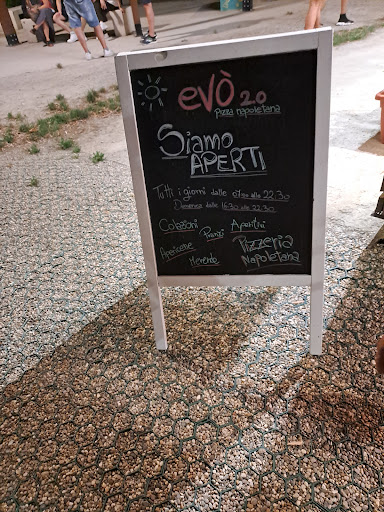 evò 2.0
Pizza napoletana
Siamo
APERTI
Tutti i giorni dalle 07:30 alle 22.30
Domenica dalle 16:30 alle 22.30
Colazioni Pranzi Aperitivi
Apericene Merende Pizzeria
Napoletana